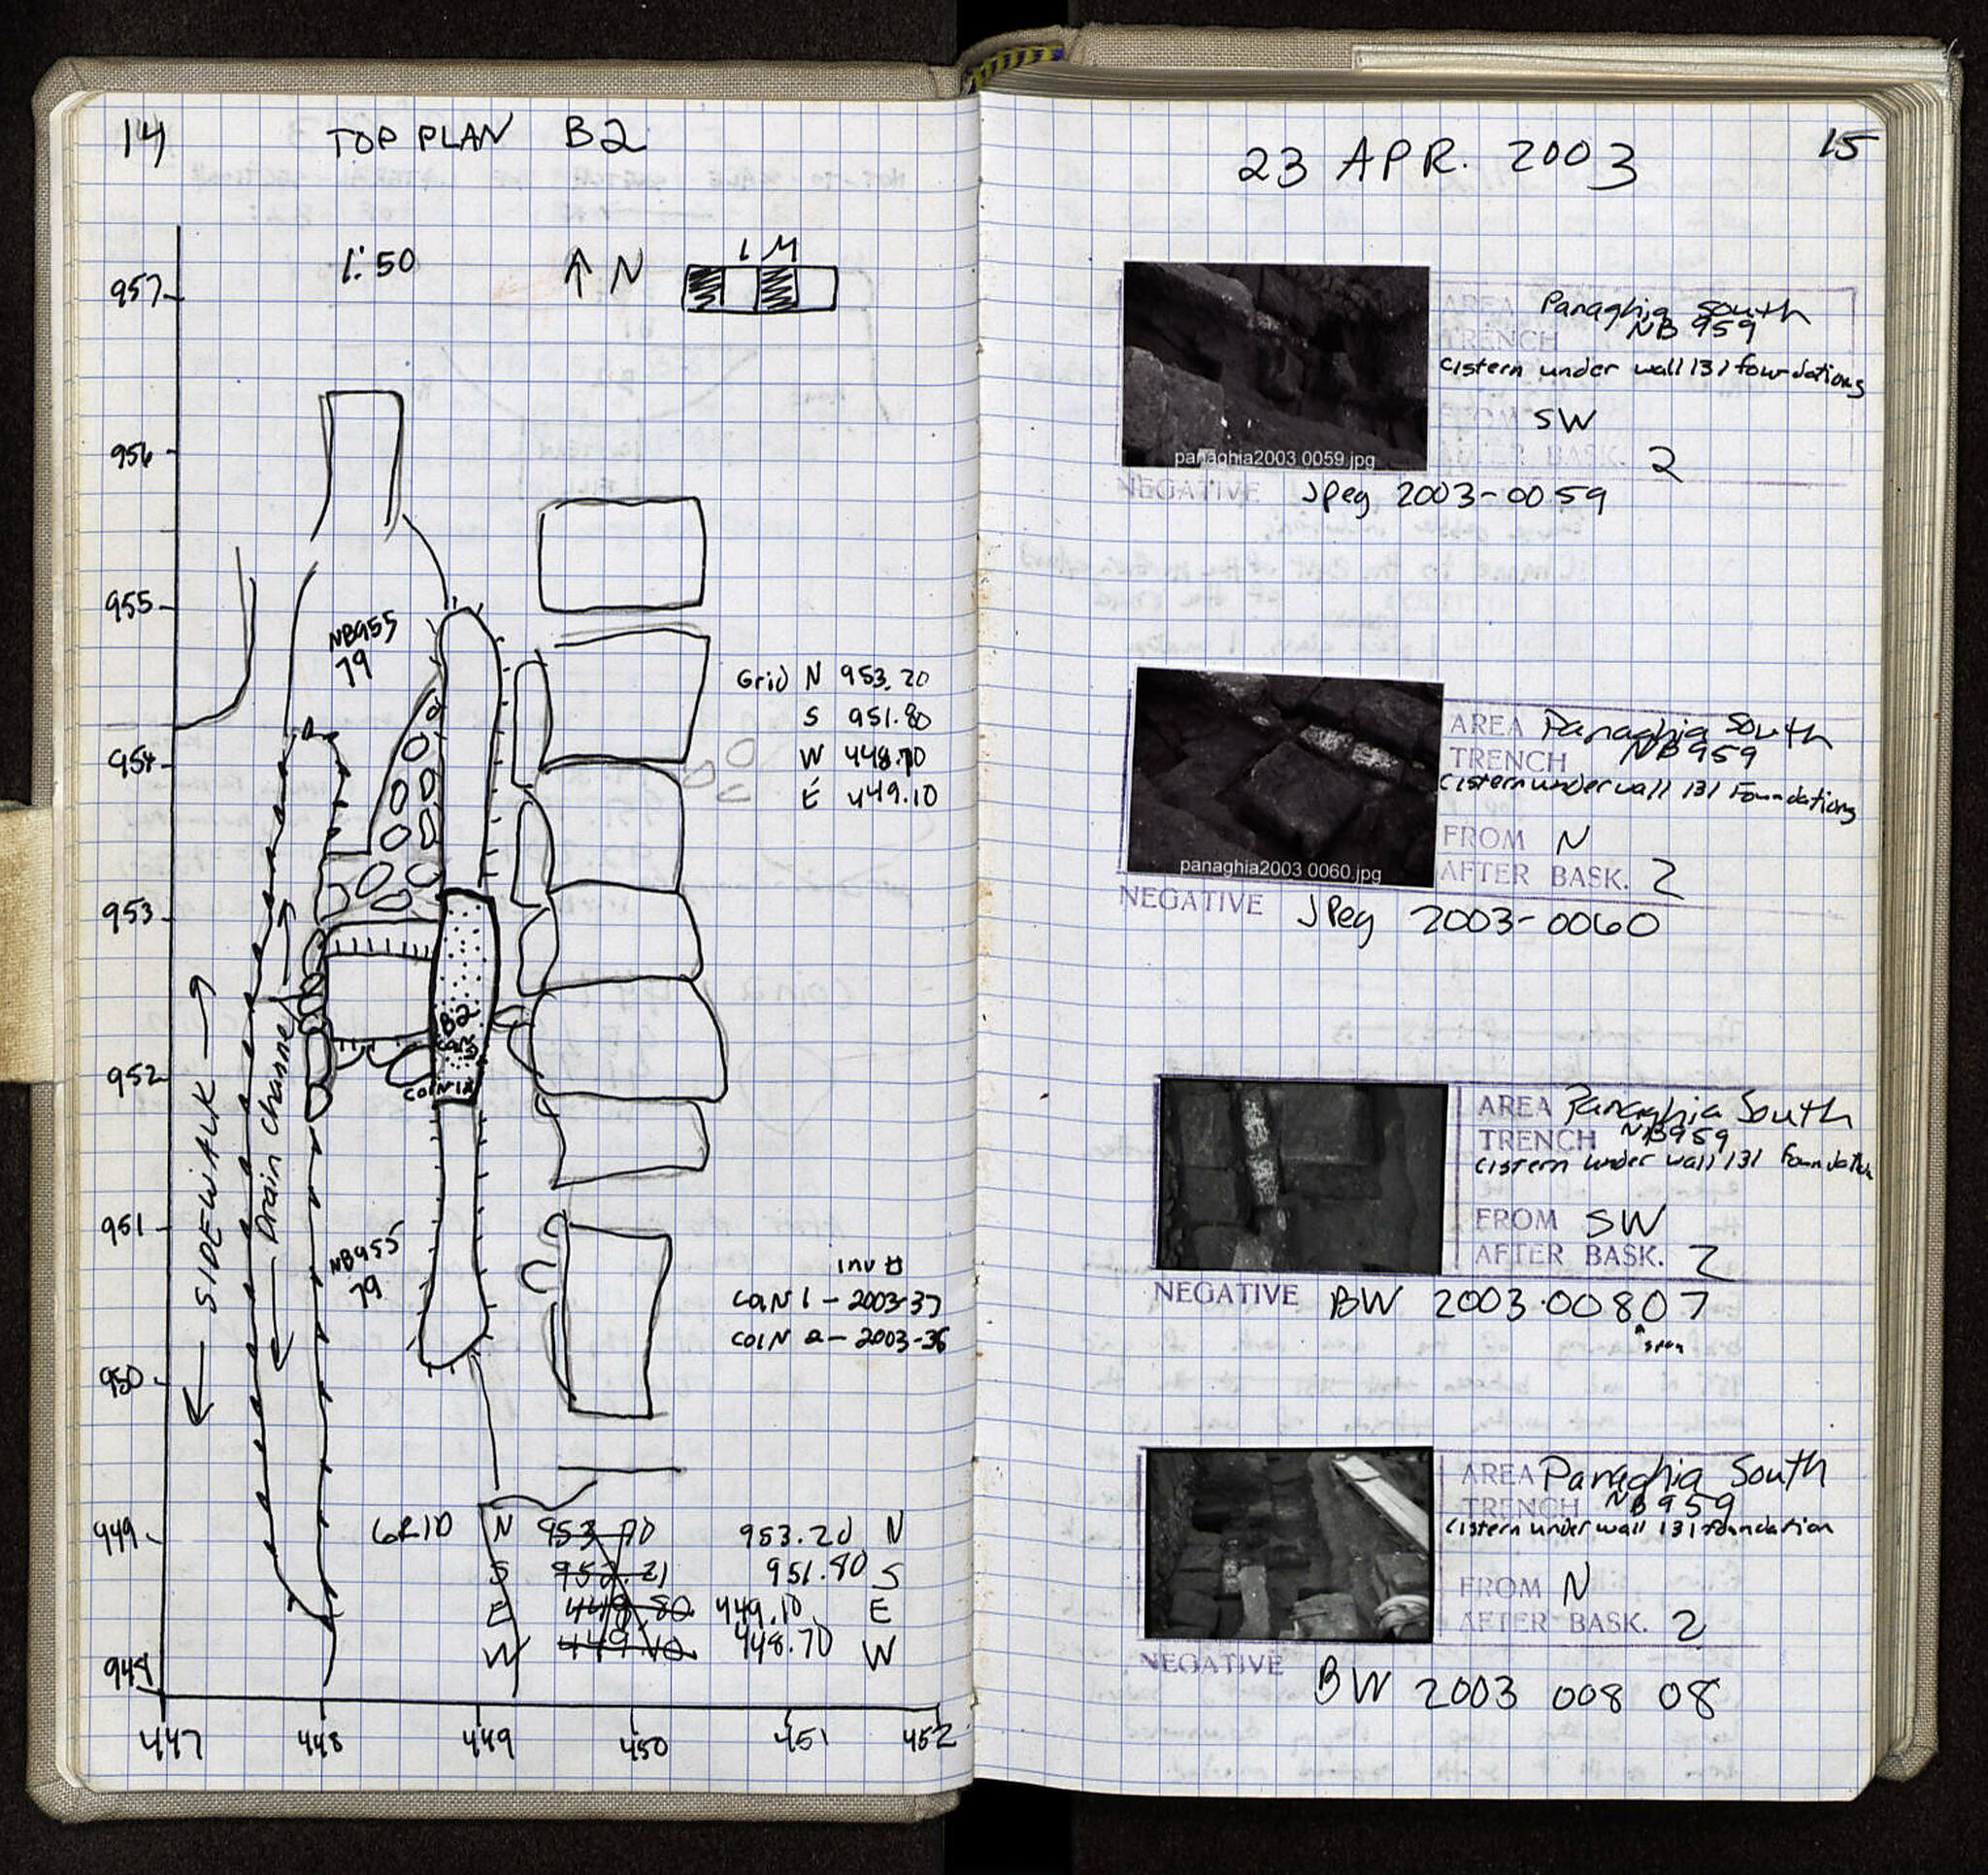 14
TOP PLAN B2
1:50
↑ N
1 M
957
956
955
954
953
952
951
950
949
948
447
448
449
450
451
452
NB955
79
Grid N 953.20
S 951.80
W 448.70
E 449.10
B2
COIN 2
COIN 1
← SIDEWALK →
← Drain Channel →
NB955
79
inv #
COIN 1 - 2003-37
COIN 2 - 2003-36
GRID N 953.20 N
S 951.80 S
E 449.10 E
W 448.70 W
15
23 APR. 2003
AREA Panaghia South
TRENCH NB 959
cistern under wall 131 foundations
FROM SW
AFTER BASK. 2
panaghia2003 0059.jpg
NEGATIVE Jpeg 2003-0059
AREA Panaghia South
TRENCH NB959
cistern under wall 131 Foundations
FROM N
AFTER BASK. 2
panaghia2003 0060.jpg
NEGATIVE JPeg 2003-0060
AREA Panaghia South
TRENCH NB959
cistern under wall 131 foundation
FROM SW
AFTER BASK. 2
NEGATIVE BW 2003-00807
AREA Panaghia South
TRENCH NB959
cistern under wall 131 foundation
FROM N
AFTER BASK. 2
NEGATIVE BW 2003 008 08